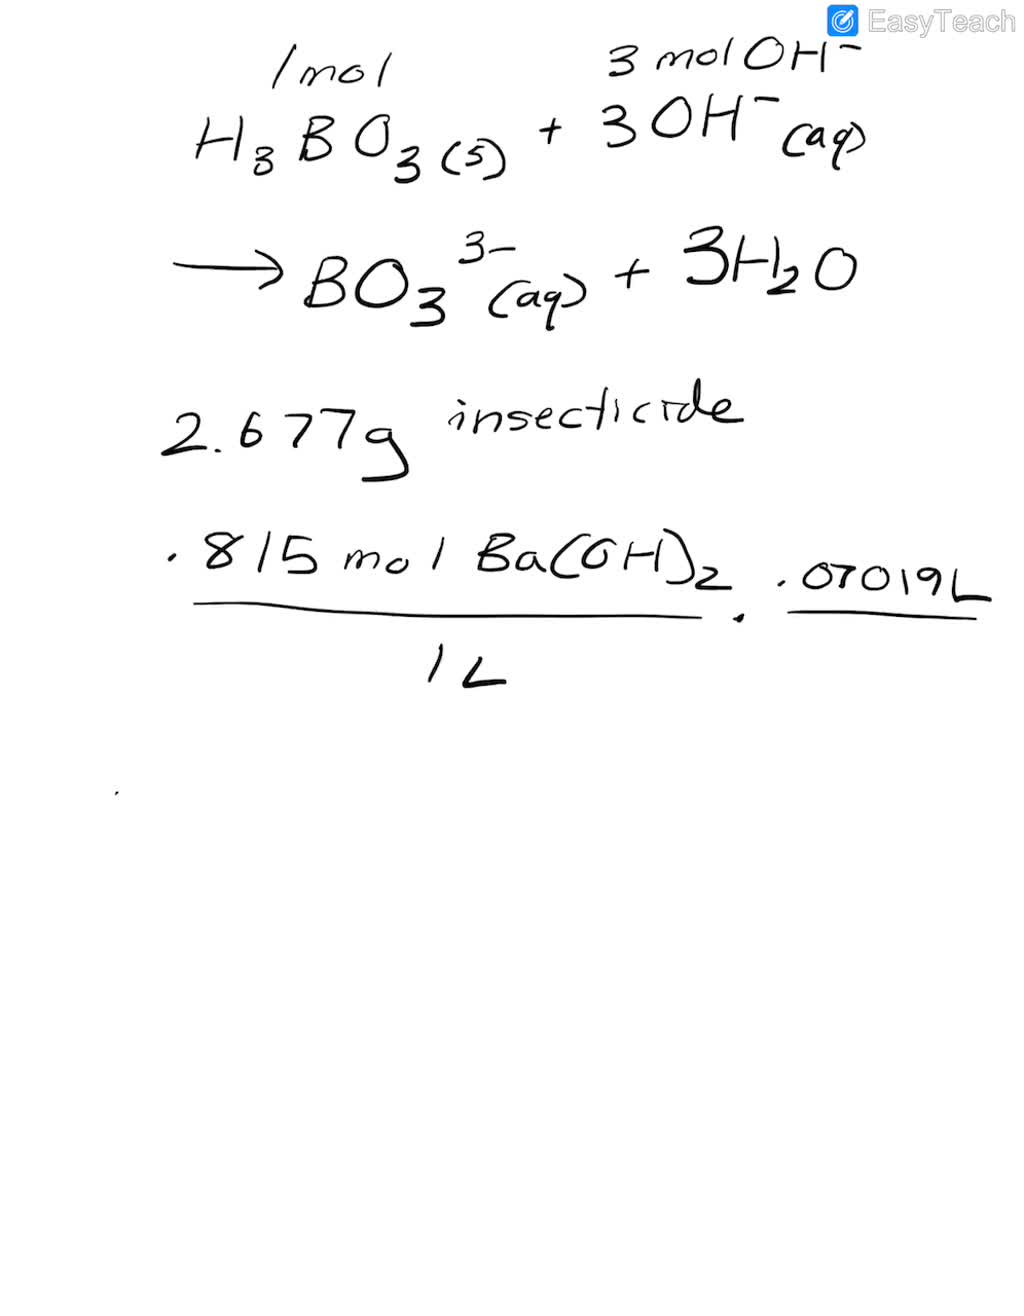 EasyTeach
1mol 3 molOH⁻
H₃BO₃(s) + 3OH⁻(aq)
→ BO₃³⁻(aq) + 3H₂O
2.677g insecticide
.815 mol Ba(OH)₂ . .07019L
1L